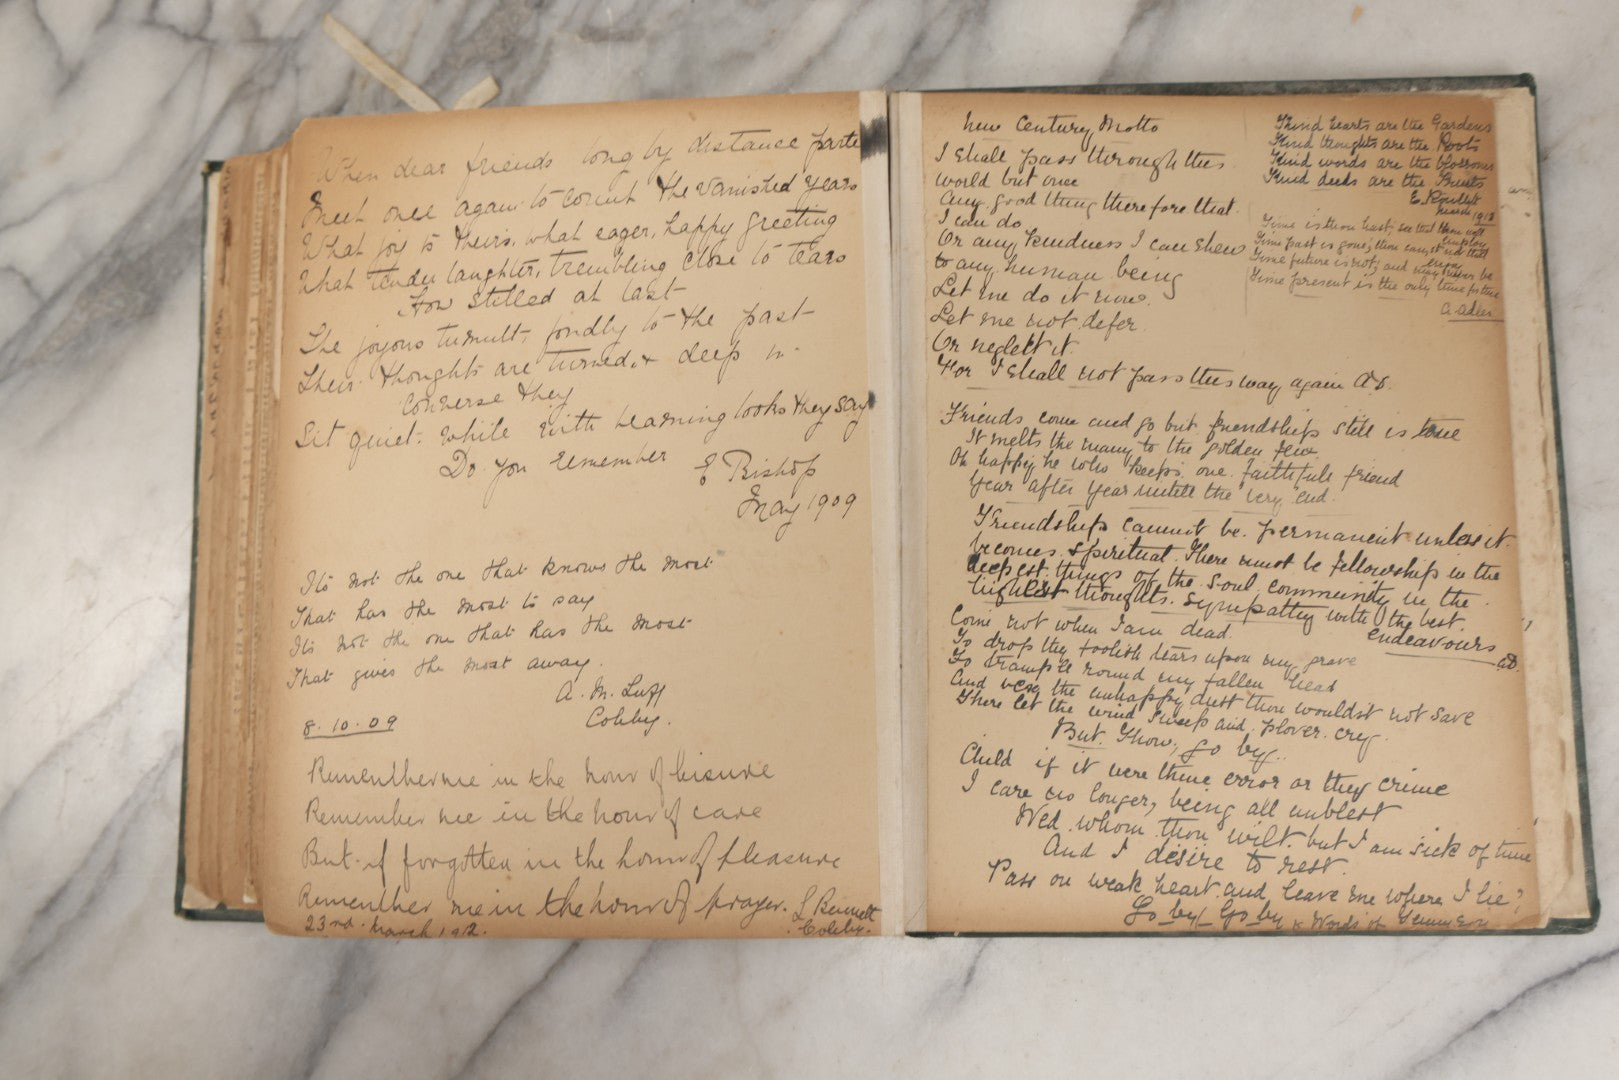 When dear friends long by distance parte
Meet once again to count the vanished years
What joy is theirs, what eager, happy greeting
What tender laughter, trembling close to tears
How stilled at last
The joyous tumult, fondly to the past
Their thoughts are turned, & deep in
converse they
Sit quiet. While with learning looks they say
Do you remember
E Bishop
May 1909
Its not the one that knows the most
That has the most to say
Its not the one that has the most
That gives the most away.
A. M. Luff
Cobby.
8.10.09
Remember me in the hour of leisure
Remember me in the hour of care
But if forgotten in the hour of pleasure
Remember me in the hour of prayer.
L Bennett
Cobby.
23rd March 1912.
New Century Motto
I shall pass through this
world but once
Any good thing therefore that
I can do
Or any kindness I can shew
to any human being
Let me do it now.
Let me not defer
Or neglect it.
For I shall not pass this way again A.D.
Kind hearts are the Gardens
Kind thoughts are the Roots
Kind words are the blossoms
Kind deeds are the Fruits
E.
March 1912
Time is thou hast, see that thou well
employ
Time past is gone, thou canst not that
enjoy
Time future is not, and may never be
Time present is the only time for thee
A. Adler
Friends come and go but friendship still is true
It melts the many to the golden few
Oh happy he who keeps one faithfull friend
Year after year untill the very end.
Friendship cannot be permanent unless it
becomes spiritual. There must be fellowship in the
deepest things of the soul, community in the
highest thoughts. Sympathy with the best
endeavours
A.D.
Come not when I am dead
To drop thy foolish tears upon my grave
To trample round my fallen head
And vex the unhappy dust thou wouldst not save
There let the wind sweep and plover cry
But Thou, go by.
Child if it were thine error or they crime
I care no longer, being all unblest
Wed whom thou wilt but I am sick of time
And I desire to rest.
Pass on weak heart and leave me where I lie?
Go by Go by
Words of Tennyson